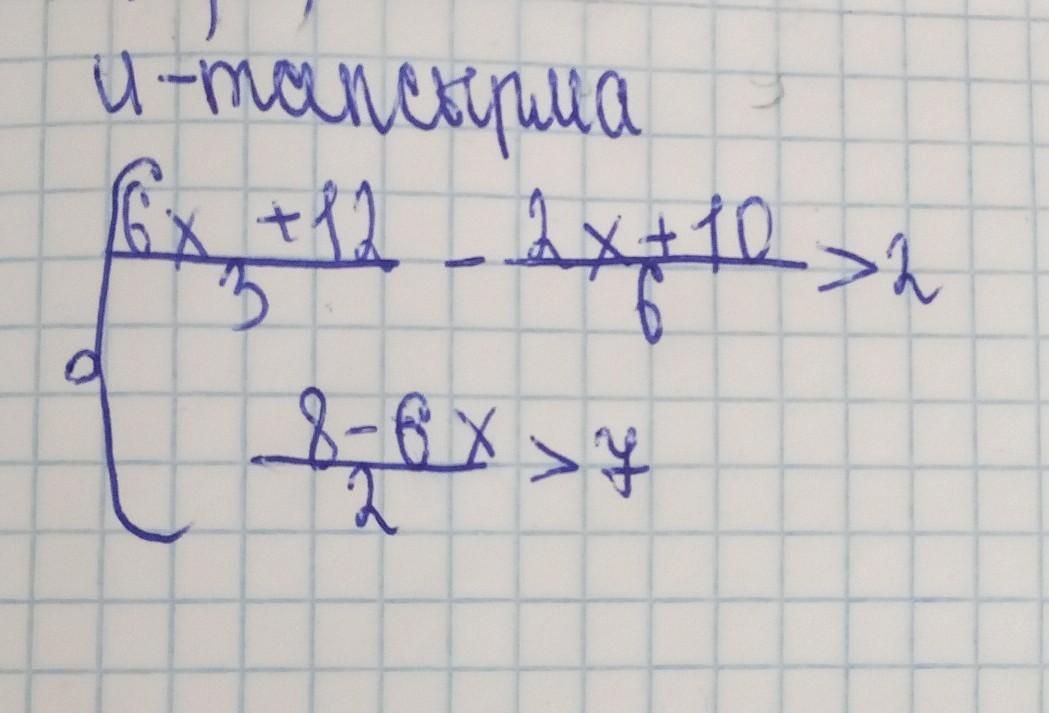 и-тапсырма
6x +12 / 3 - 2x+10 / 6 > 2
8-6x / 2 > 7